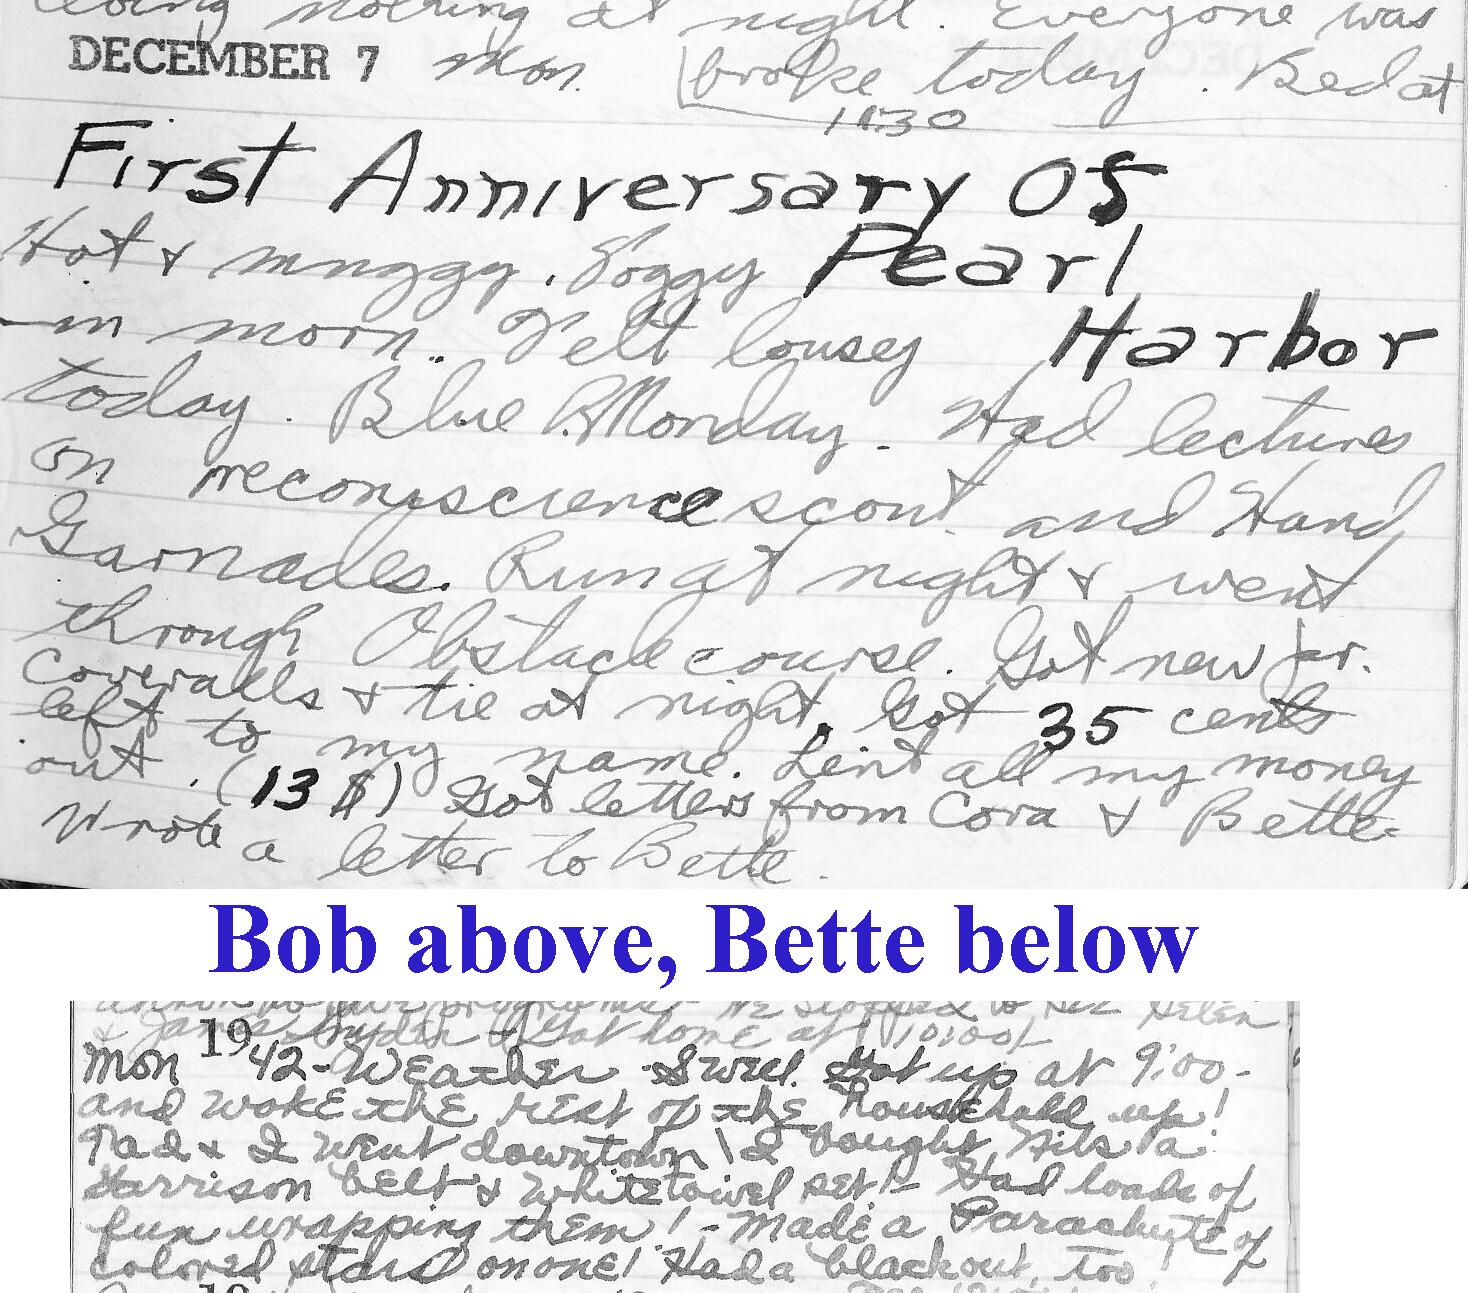 doing nothing at night. Everyone was
DECEMBER 7 Mon. broke today. Bed at
1030
First Anniversary Of
Hot & muggy. Foggy Pearl
in morn. Felt lousey Harbor
today. Blue Monday. Had lectures
on reconiscience scout and Hand
Garnades. Run at night & went
through Obstacle course. Got new
coveralls & tie at night. Got 35 cents
left to my name. Lent all my money
out. (13 $) Got letters from Cora & Bette
Wrote a letter to Bette.
Bob above, Bette below
we stopped to see Helen
& Snyder & Got home at 10:00!-
Mon 1942-Weather Swell. Got up at 9:00-
and woke the rest of the household up!
Tad & I went downtown I bought a
Harrison belt & white towel set!- Had loads of
fun wrapping them!- Made a Parachute of
colored stars on one! Had a blackout, too!